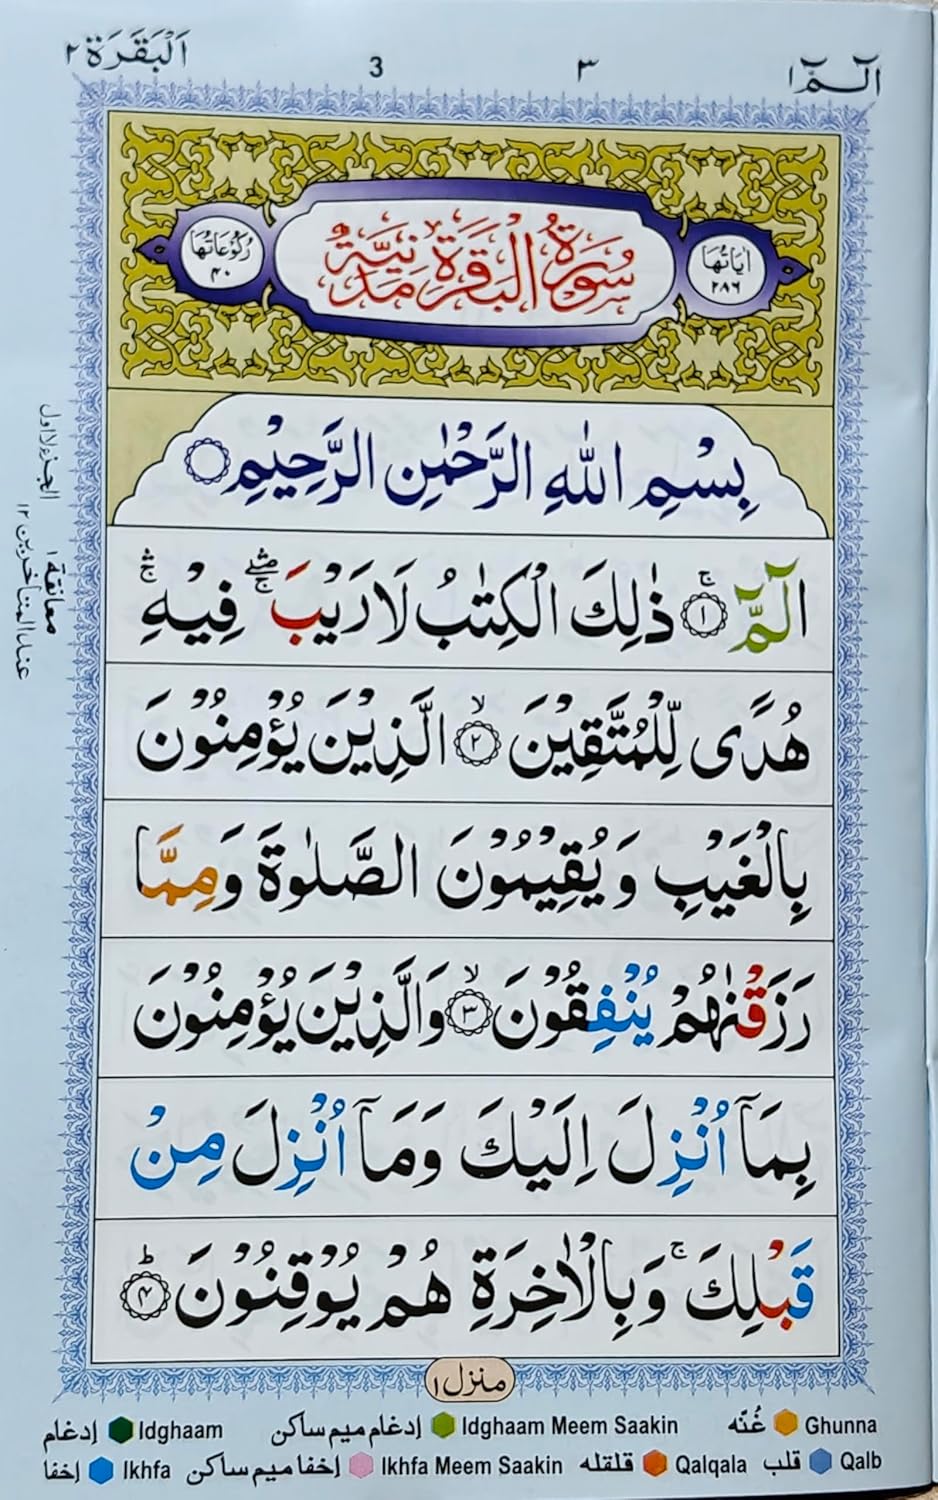 الٓمّٓ ١
٣
3
اَلْبَقَرَة ٢
اٰيَاتُهَا ٢٨٦
سُوْرَةُ الْبَقَرَةِ مَدَنِيَّةٌ
رُكُوْعَاتُهَا ٤٠
بِسْمِ اللّٰهِ الرَّحْمٰنِ الرَّحِيْمِ
الٓمّٓ ۚ ١ ذٰلِكَ الْكِتٰبُ لَا رَيْبَ ۛۖۚ فِيْهِ ۛۚ
هُدًى لِّلْمُتَّقِيْنَ ۙ ٢ الَّذِيْنَ يُؤْمِنُوْنَ
بِالْغَيْبِ وَيُقِيْمُوْنَ الصَّلٰوةَ وَمِمَّا
رَزَقْنٰهُمْ يُنْفِقُوْنَ ۙ ٣ وَالَّذِيْنَ يُؤْمِنُوْنَ
بِمَاۤ اُنْزِلَ اِلَيْكَ وَمَاۤ اُنْزِلَ مِنْ
قَبْلِكَ ۚ وَبِالْاٰخِرَةِ هُمْ يُوْقِنُوْنَ ؕ ٤
الجزء الاول
معانقة ١
عند المتاخرين ١٢
منزل ١
Ghunna غُنَّه Idghaam Meem Saakin إدغام ميم ساكن Idghaam إدغام
Qalb قلب Qalqala قلقله Ikhfa Meem Saakin إخفا ميم ساكن Ikhfa إخفا